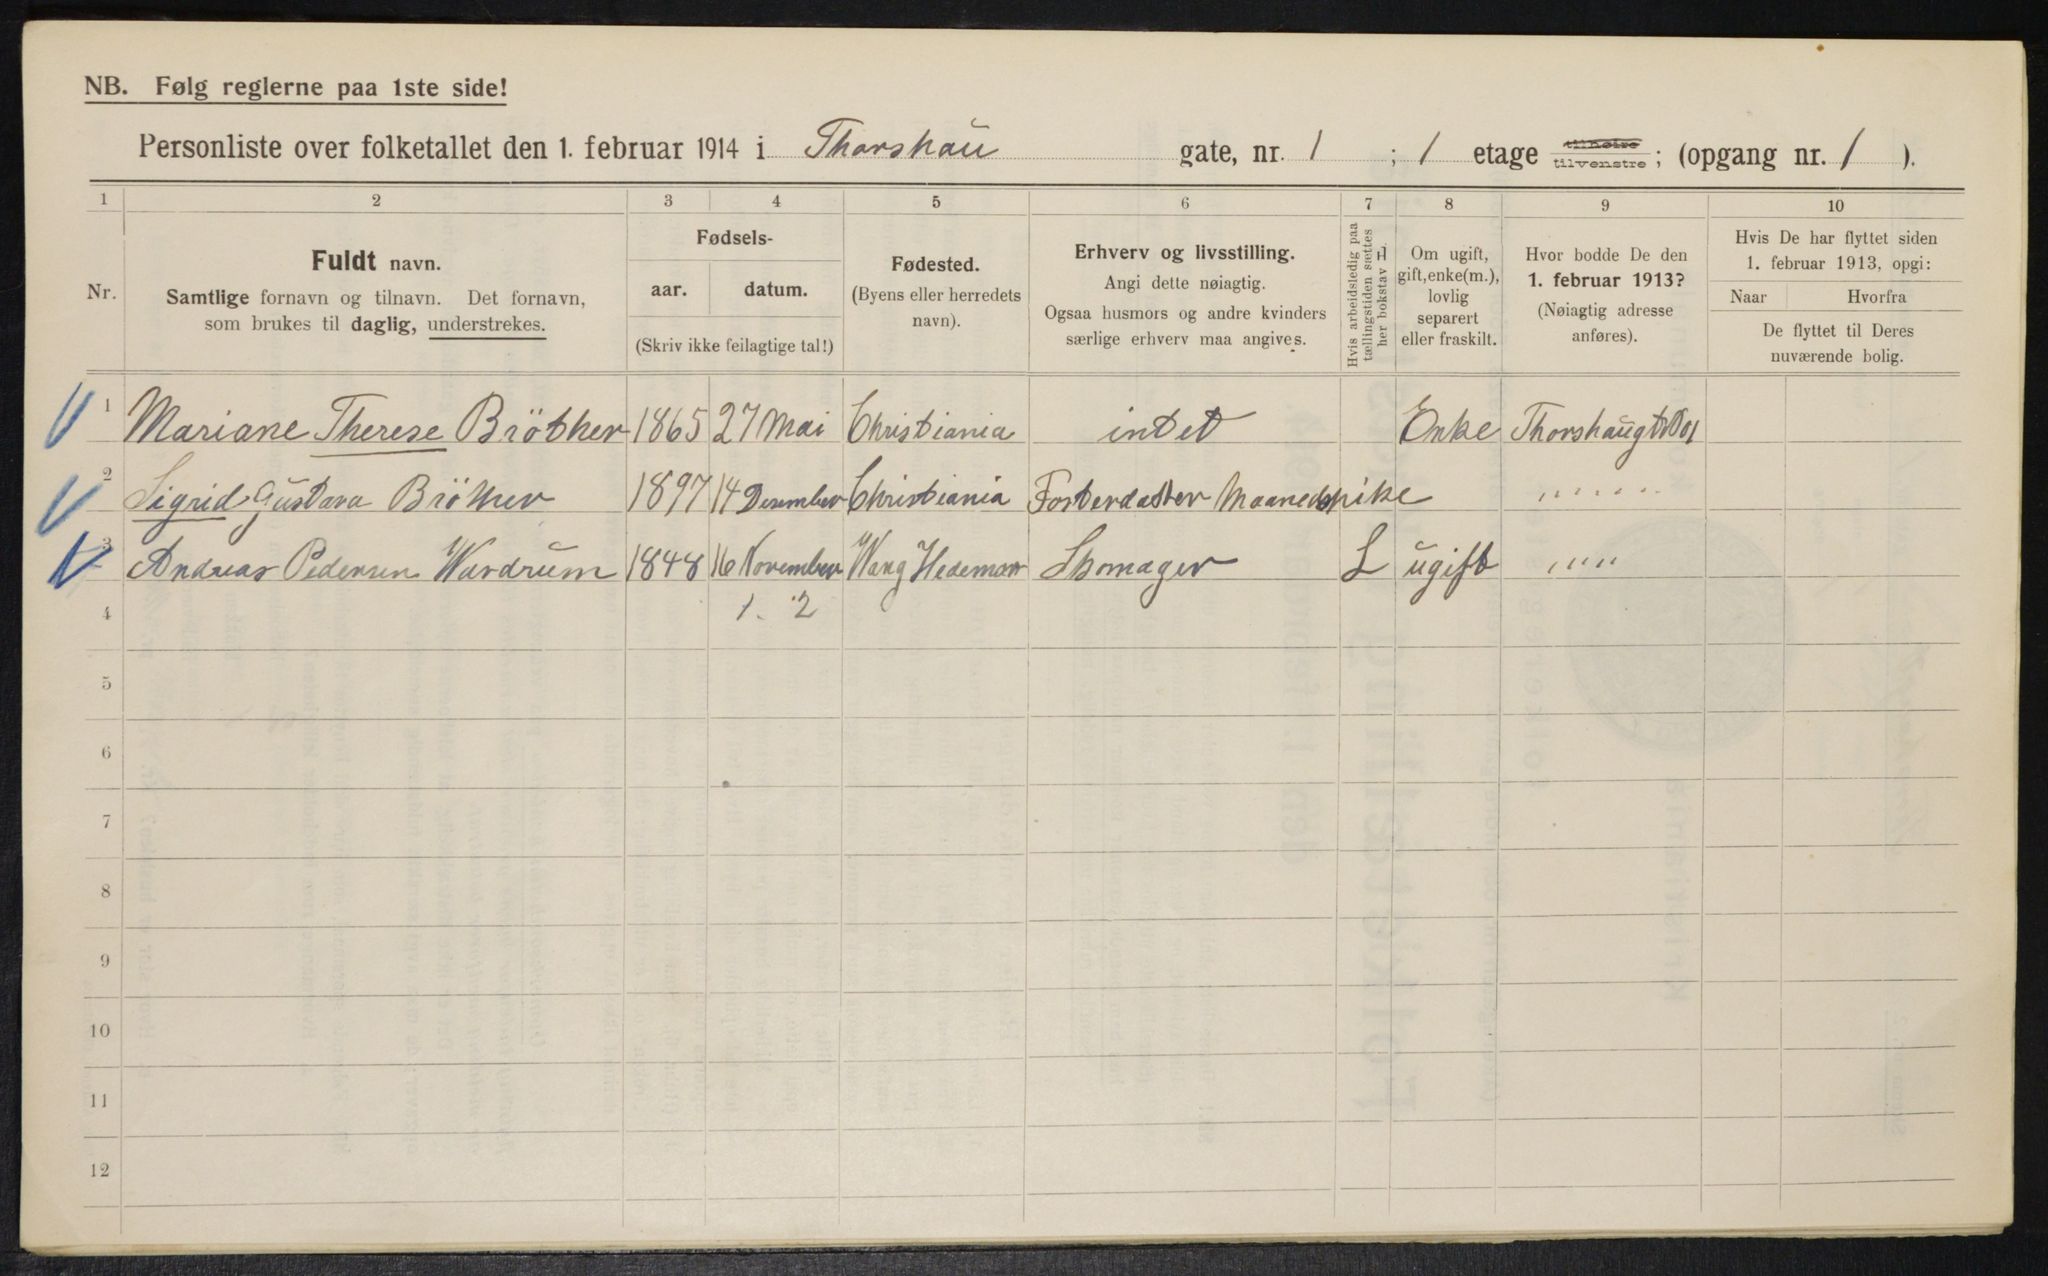 NB. Følg reglerne paa 1ste side!
Personliste over folketallet den 1. februar 1914 i Thorshau gate, nr. 1 ; 1 etage tilhøire tilvenstre ; (opgang nr. 1 ).
1 2 3 4 5 6 7 8 9 10
Nr.
Fuldt navn.
Samtlige fornavn og tilnavn. Det fornavn,
som brukes til daglig, understrekes.
Fødsels-
aar. datum.
(Skriv ikke feilagtige tal!)
Fødested.
(Byens eller herredets
navn).
Erhverv og livsstilling.
Angi dette nøiagtig.
Ogsaa husmors og andre kvinders
særlige erhverv maa angives.
Hvis arbeidsledig paa
tællingstiden sættes
her bokstav L
Om ugift,
gift, enke(m.),
lovlig
separert
eller fraskilt.
Hvor bodde De den
1. februar 1913?
(Nøiagtig adresse
anføres).
Hvis De har flyttet siden
1. februar 1913, opgi:
Naar Hvorfra
De flyttet til Deres
nuværende bolig.
1 Mariane Therese Bröther 1865 27 Mai Christiania intet Enke
2 Sigrid Gustava Bröther 1897 14 Desember Christiania Fosterdatter Maanedspike " " " " " "
3 Andreas Pedersen Wardrum 1848 16 November Wang Hedemar Skomager L ugift " " " "
4 1. 2
5
6
7
8
9
10
11
12